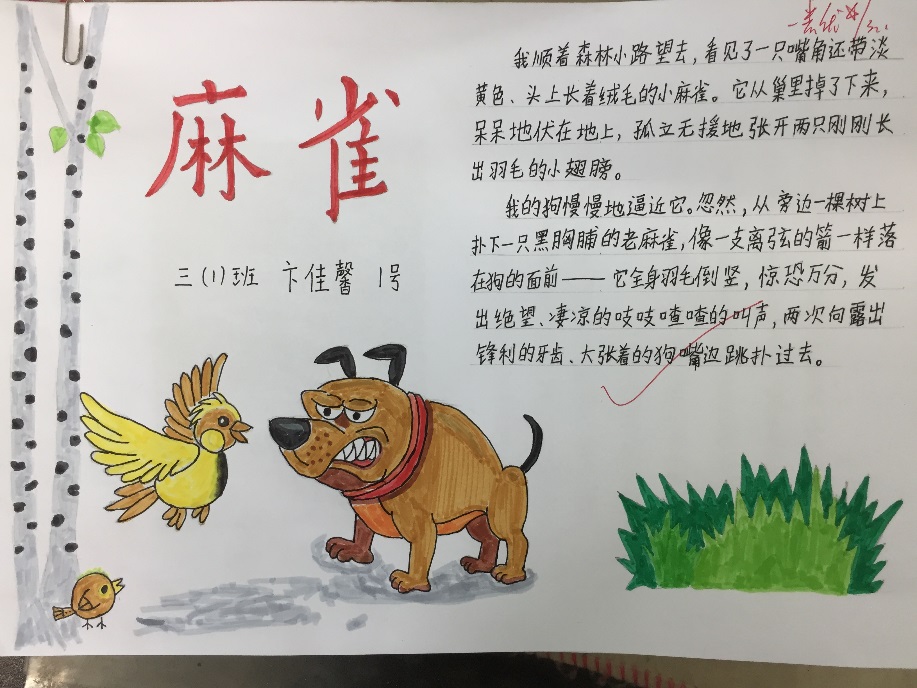 麻雀
三(1)班 卞佳馨 1号
我顺着森林小路望去，看见了一只嘴角还带淡
黄色、头上长着绒毛的小麻雀。它从巢里掉了下来，
呆呆地伏在地上，孤立无援地张开两只刚刚长
出羽毛的小翅膀。
我的狗慢慢地逼近它。忽然，从旁边一棵树上
扑下一只黑胸脯的老麻雀，像一支离弦的箭一样落
在狗的面前——它全身羽毛倒竖，惊恐万分，发
出绝望、凄凉的吱吱喳喳的叫声，两次向露出
锋利的牙齿、大张着的狗嘴边跳扑过去。